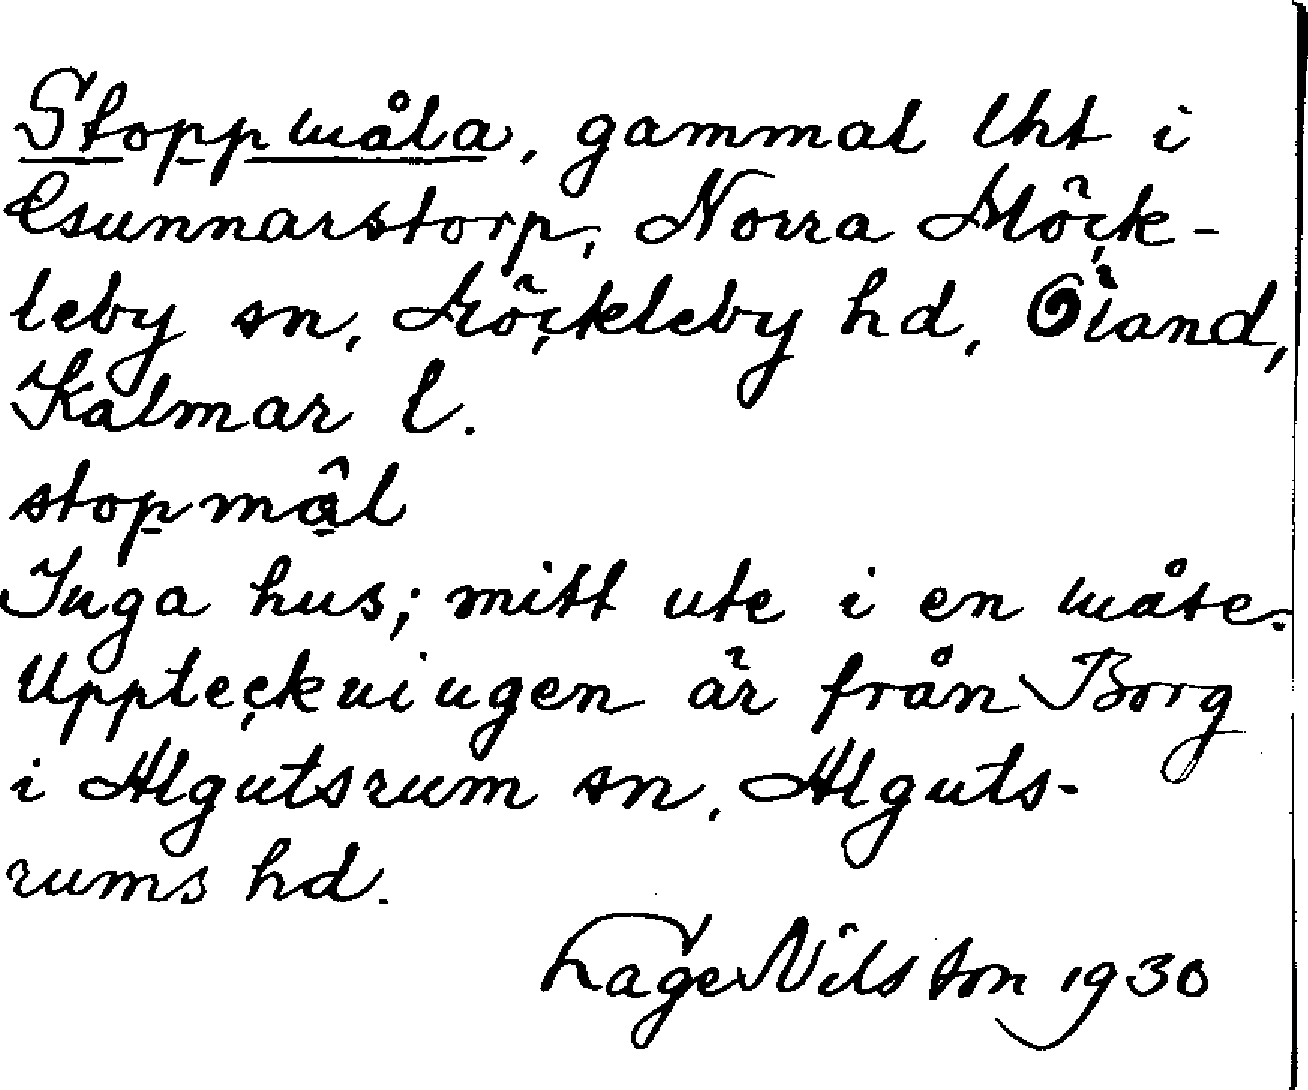 Stoppmåla, gammal lht i
Gunnarstorp, Norra Möck-
leby sn, Möckleby hd, Öland,
Kalmar l.
stopmål
Inga hus; mitt ute i en måse.
Uppteckningen är från Borg
i Algutsrum sn, Alguts-
rums hd.
Lage Nilsson 1930